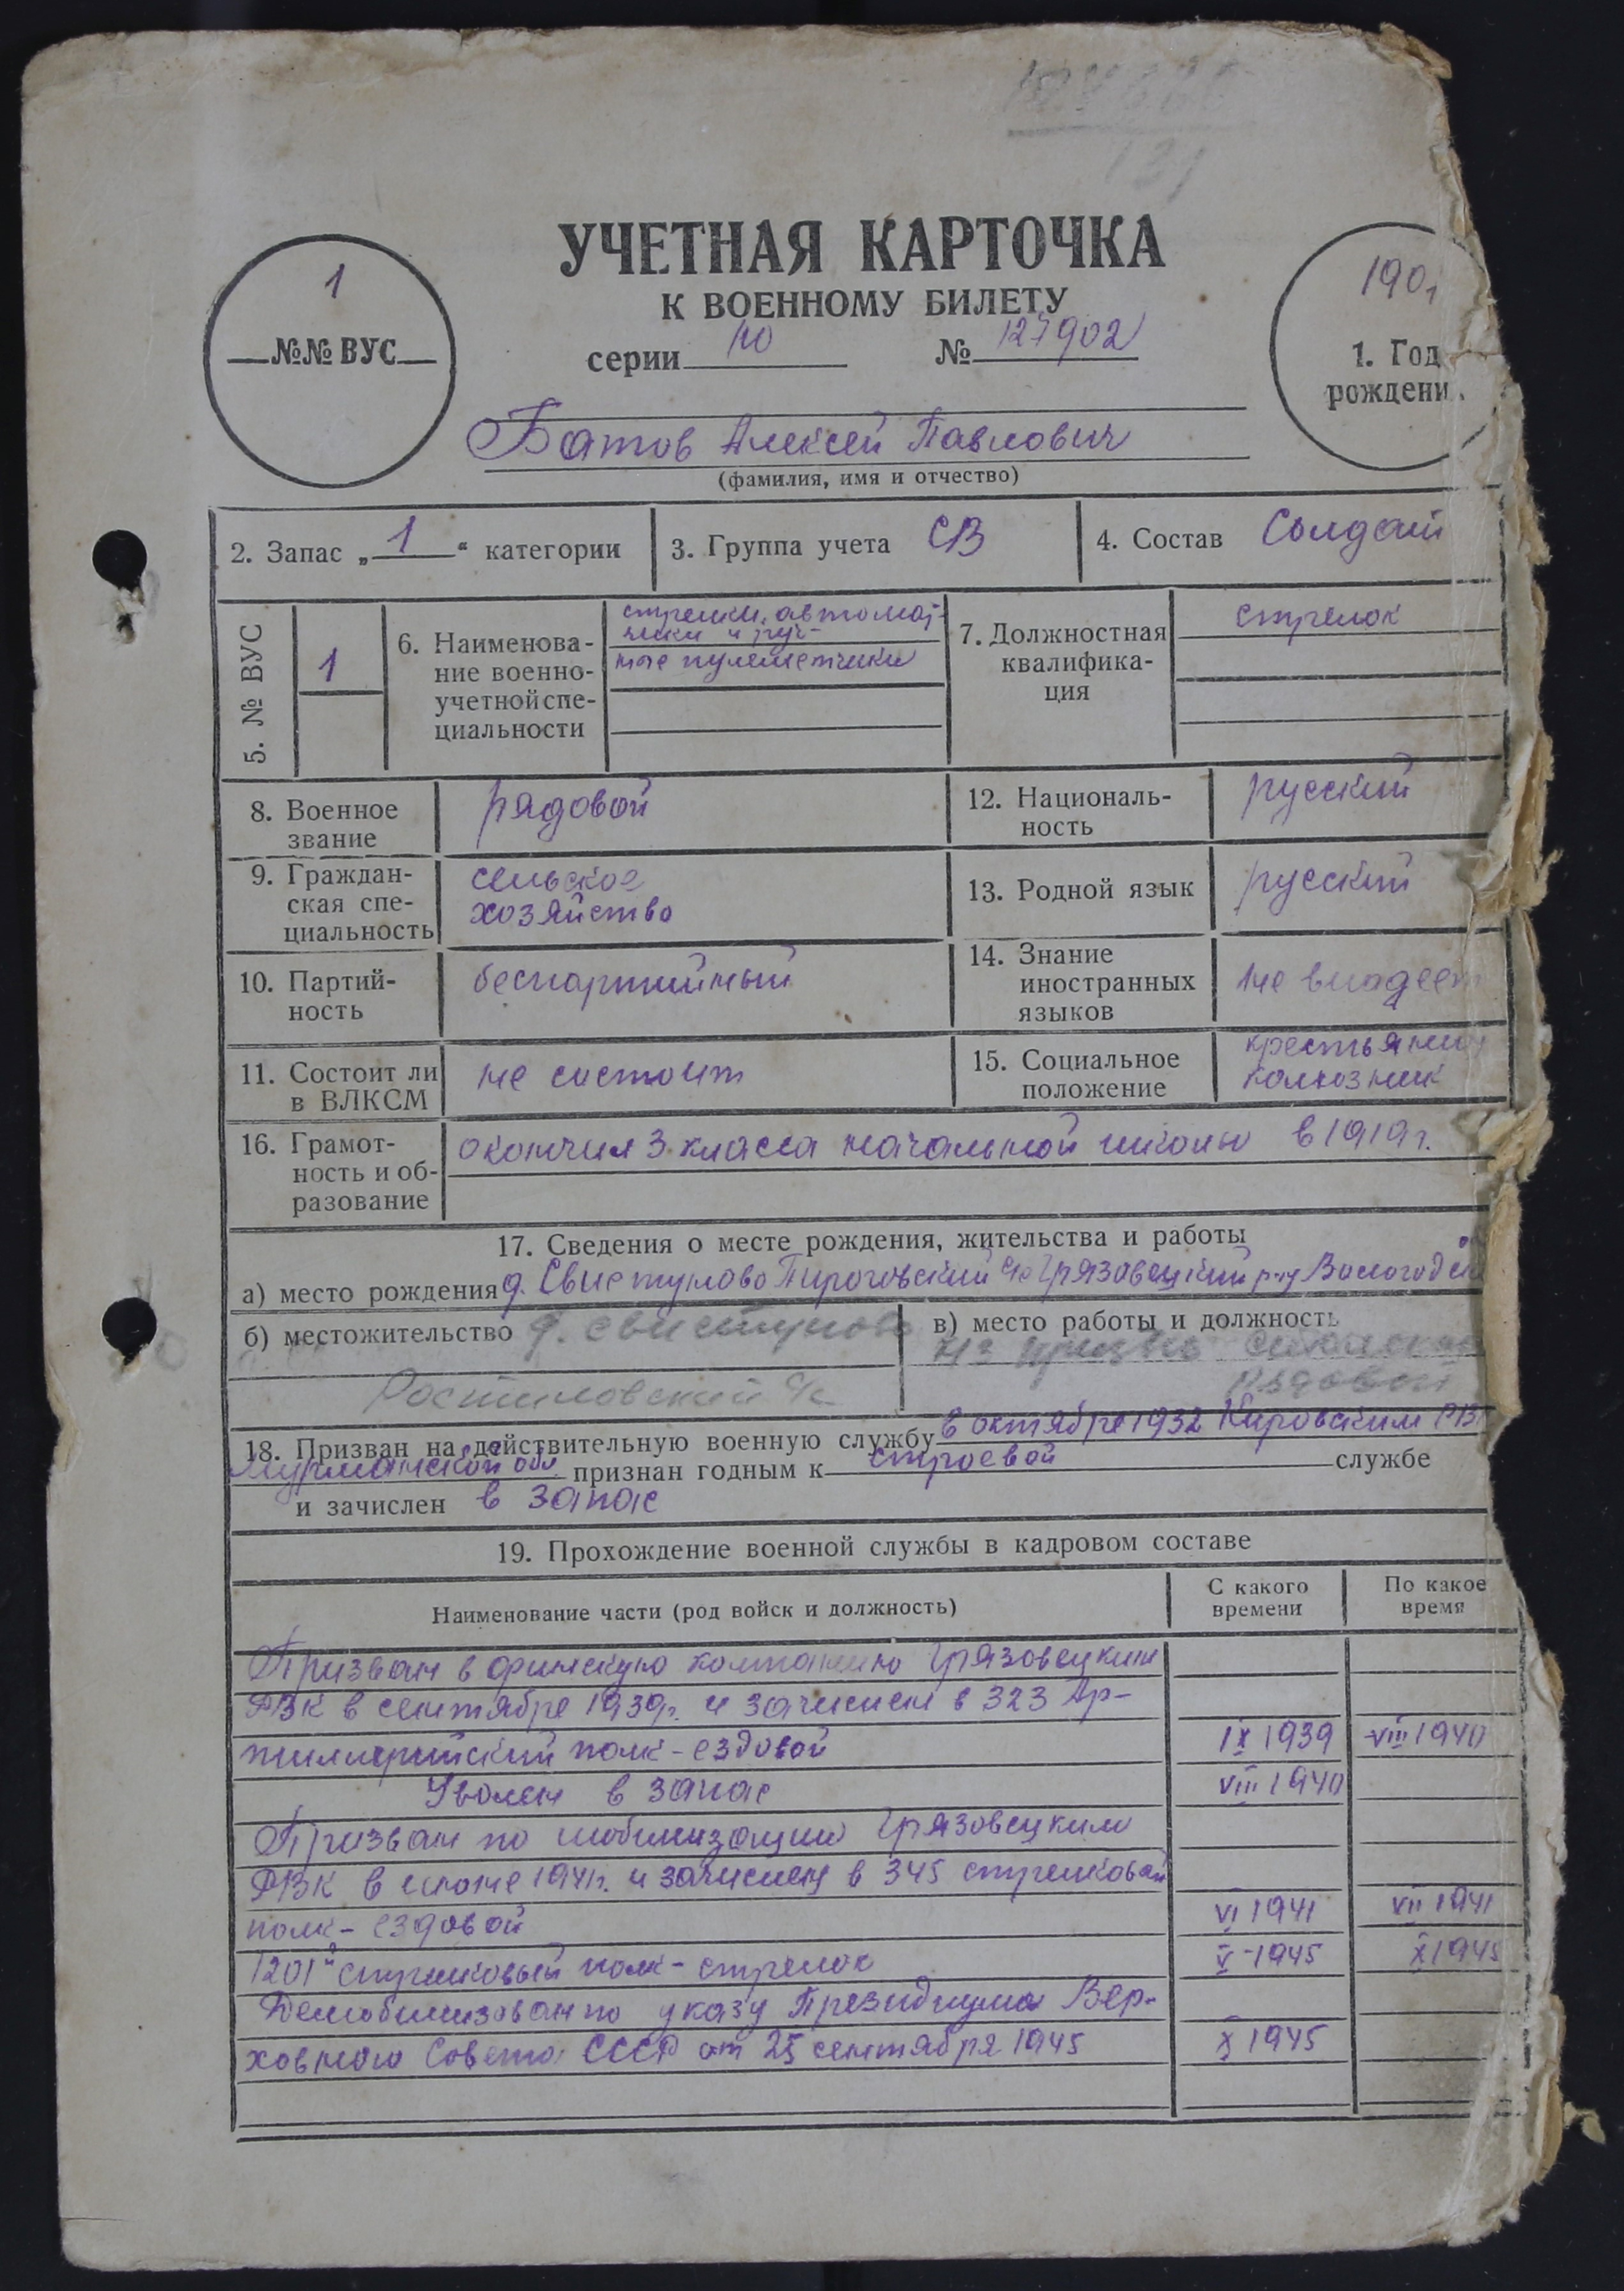 УЧЕТНАЯ КАРТОЧКА
К ВОЕННОМУ БИЛЕТУ
серии № 127902
1
№№ ВУС
1901
1. Год
рождени
Батов Алексей Павлович
(фамилия, имя и отчество)
2. Запас „ 1 “ категории
3. Группа учета СВ
4. Состав Солдат
5. № ВУС
1
6. Наименова-
ние военно-
учетной спе-
циальности
стрелки, автомат-
чики и руч-
ные пулеметчики
7. Должностная
квалифика-
ция
стрелок
8. Военное
звание
рядовой
12. Националь-
ность
русский
9. Граждан-
ская спе-
циальность
сельское
хозяйство
13. Родной язык
русский
10. Партий-
ность
беспартийный
14. Знание
иностранных
языков
не владеет
11. Состоит ли
в ВЛКСМ
не состоит
15. Социальное
положение
крестьянин
колхозник
16. Грамот-
ность и об-
разование
окончил 3 класса начальной школы в 1919 г.
17. Сведения о месте рождения, жительства и работы
а) место рождения д. Свистуново Пироговский с/с Грязовецкий р-н Вологодск
б) местожительство д. Свистуново
Ростиловский с/с
в) место работы и должность
рядовой
18. Призван на действительную военную службу в октябре 1932 Кировским РВ
Мурманской обл. признан годным к строевой службе
и зачислен в запас
19. Прохождение военной службы в кадровом составе
Наименование части (род войск и должность)
С какого
времени
По какое
время
Призван в финскую компанию Грязовецким
РВК в сентябре 1939г. и зачислен в 323 Ар-
тиллерийский полк - ездовой IX 1939 VIII 1940
Уволен в запас VIII 1940
Призван по мобилизации Грязовецким
РВК в июне 1941г. и зачислен в 345 стрелковый
полк - ездовой VI 1941 VII 1941
1201й стрелковый полк - стрелок V-1945 X 1945
Демобилизован по указу Президиума Вер-
ховного Совета СССР от 25 сентября 1945 X 1945